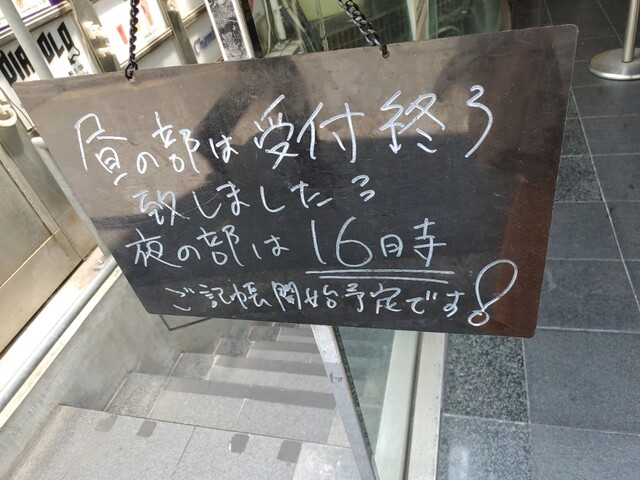 昼の部は受付終了
致しました。
夜の部は16時
ご記帳開始予定です!